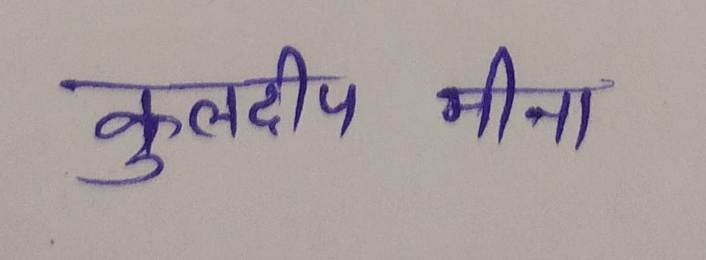 कुलदीप मीना